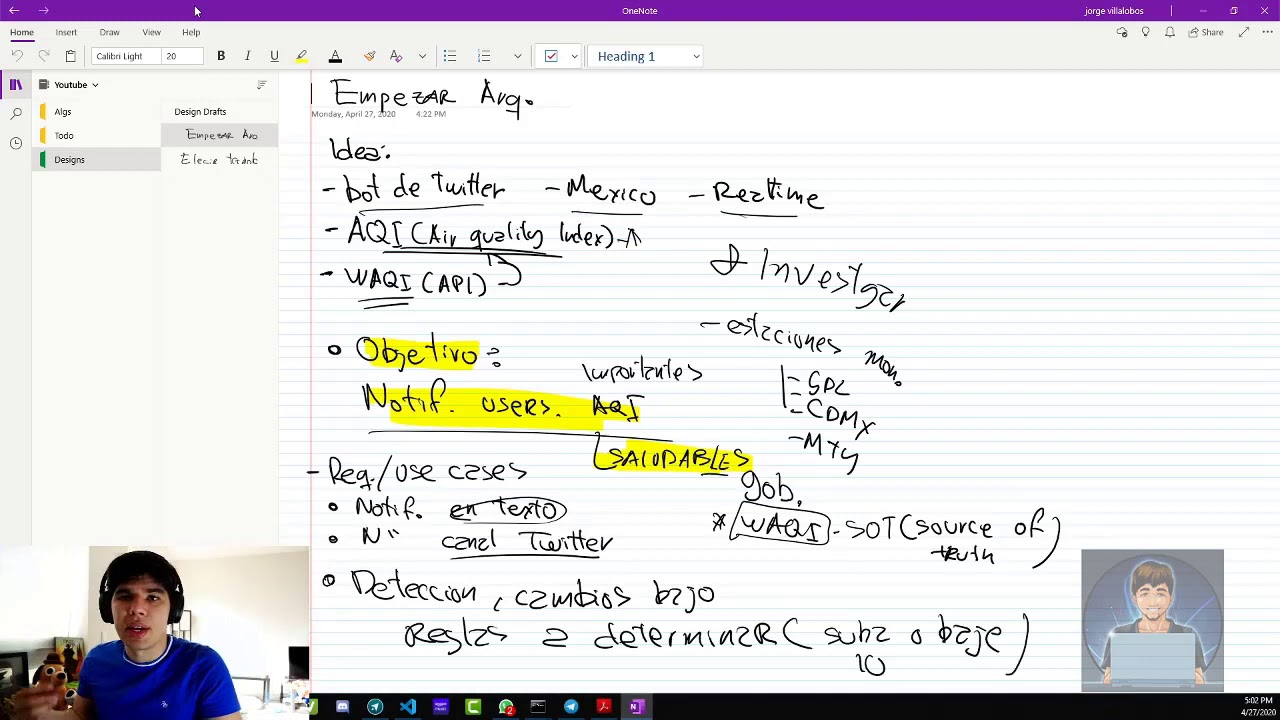 OneNote
jorge villalobos
Home Insert Draw View Help
Share
Calibri Light 20 B I U A Heading 1
Youtube
Algs
Todo
Designs
Design Drafts
Empezar Arq
Empezar Arq.
Monday, April 27, 2020 4:22 PM
Idea:
- bot de Twitter - Mexico - Realtime
- AQI (Air quality Index)
- WAQI (API)
Investigar
- estaciones mon.
- GDL
- CDMX
- MTY
• Objetivo:
Importantes
Notif. users. AQI
SALUDABLES
- Req./use cases
• Notif. en texto
• N" canal Twitter
gob.
* WAQI - SOT (source of truth)
• Deteccion, cambios bajo
Reglas a determinar (suba o baje)
10
5:02 PM
4/27/2020